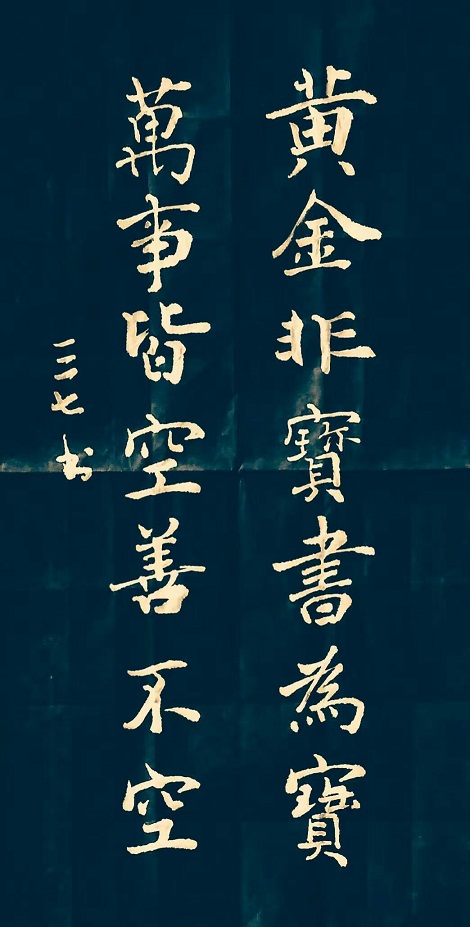 黄金非寶書為寶
萬事皆空善不空
七书